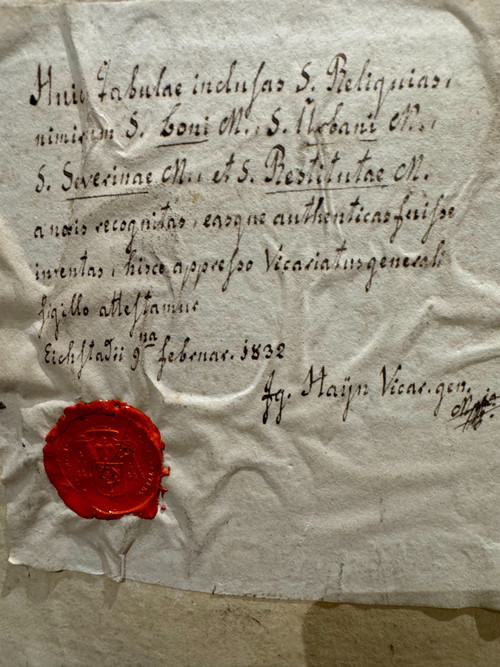 Huic Tabulae inclusas S. Reliquias,
nimirum S. Boni M., S. Urbani M.,
S. Severinae M., et S. Restitutae M.
a nobis recognitas, easque authenticas fuisse
inventas, hisce appresso Vicariatus generali
sigillo attestamur
Eichstadii 9na februar. 1832
Jg. Haÿn Vicar. gen.